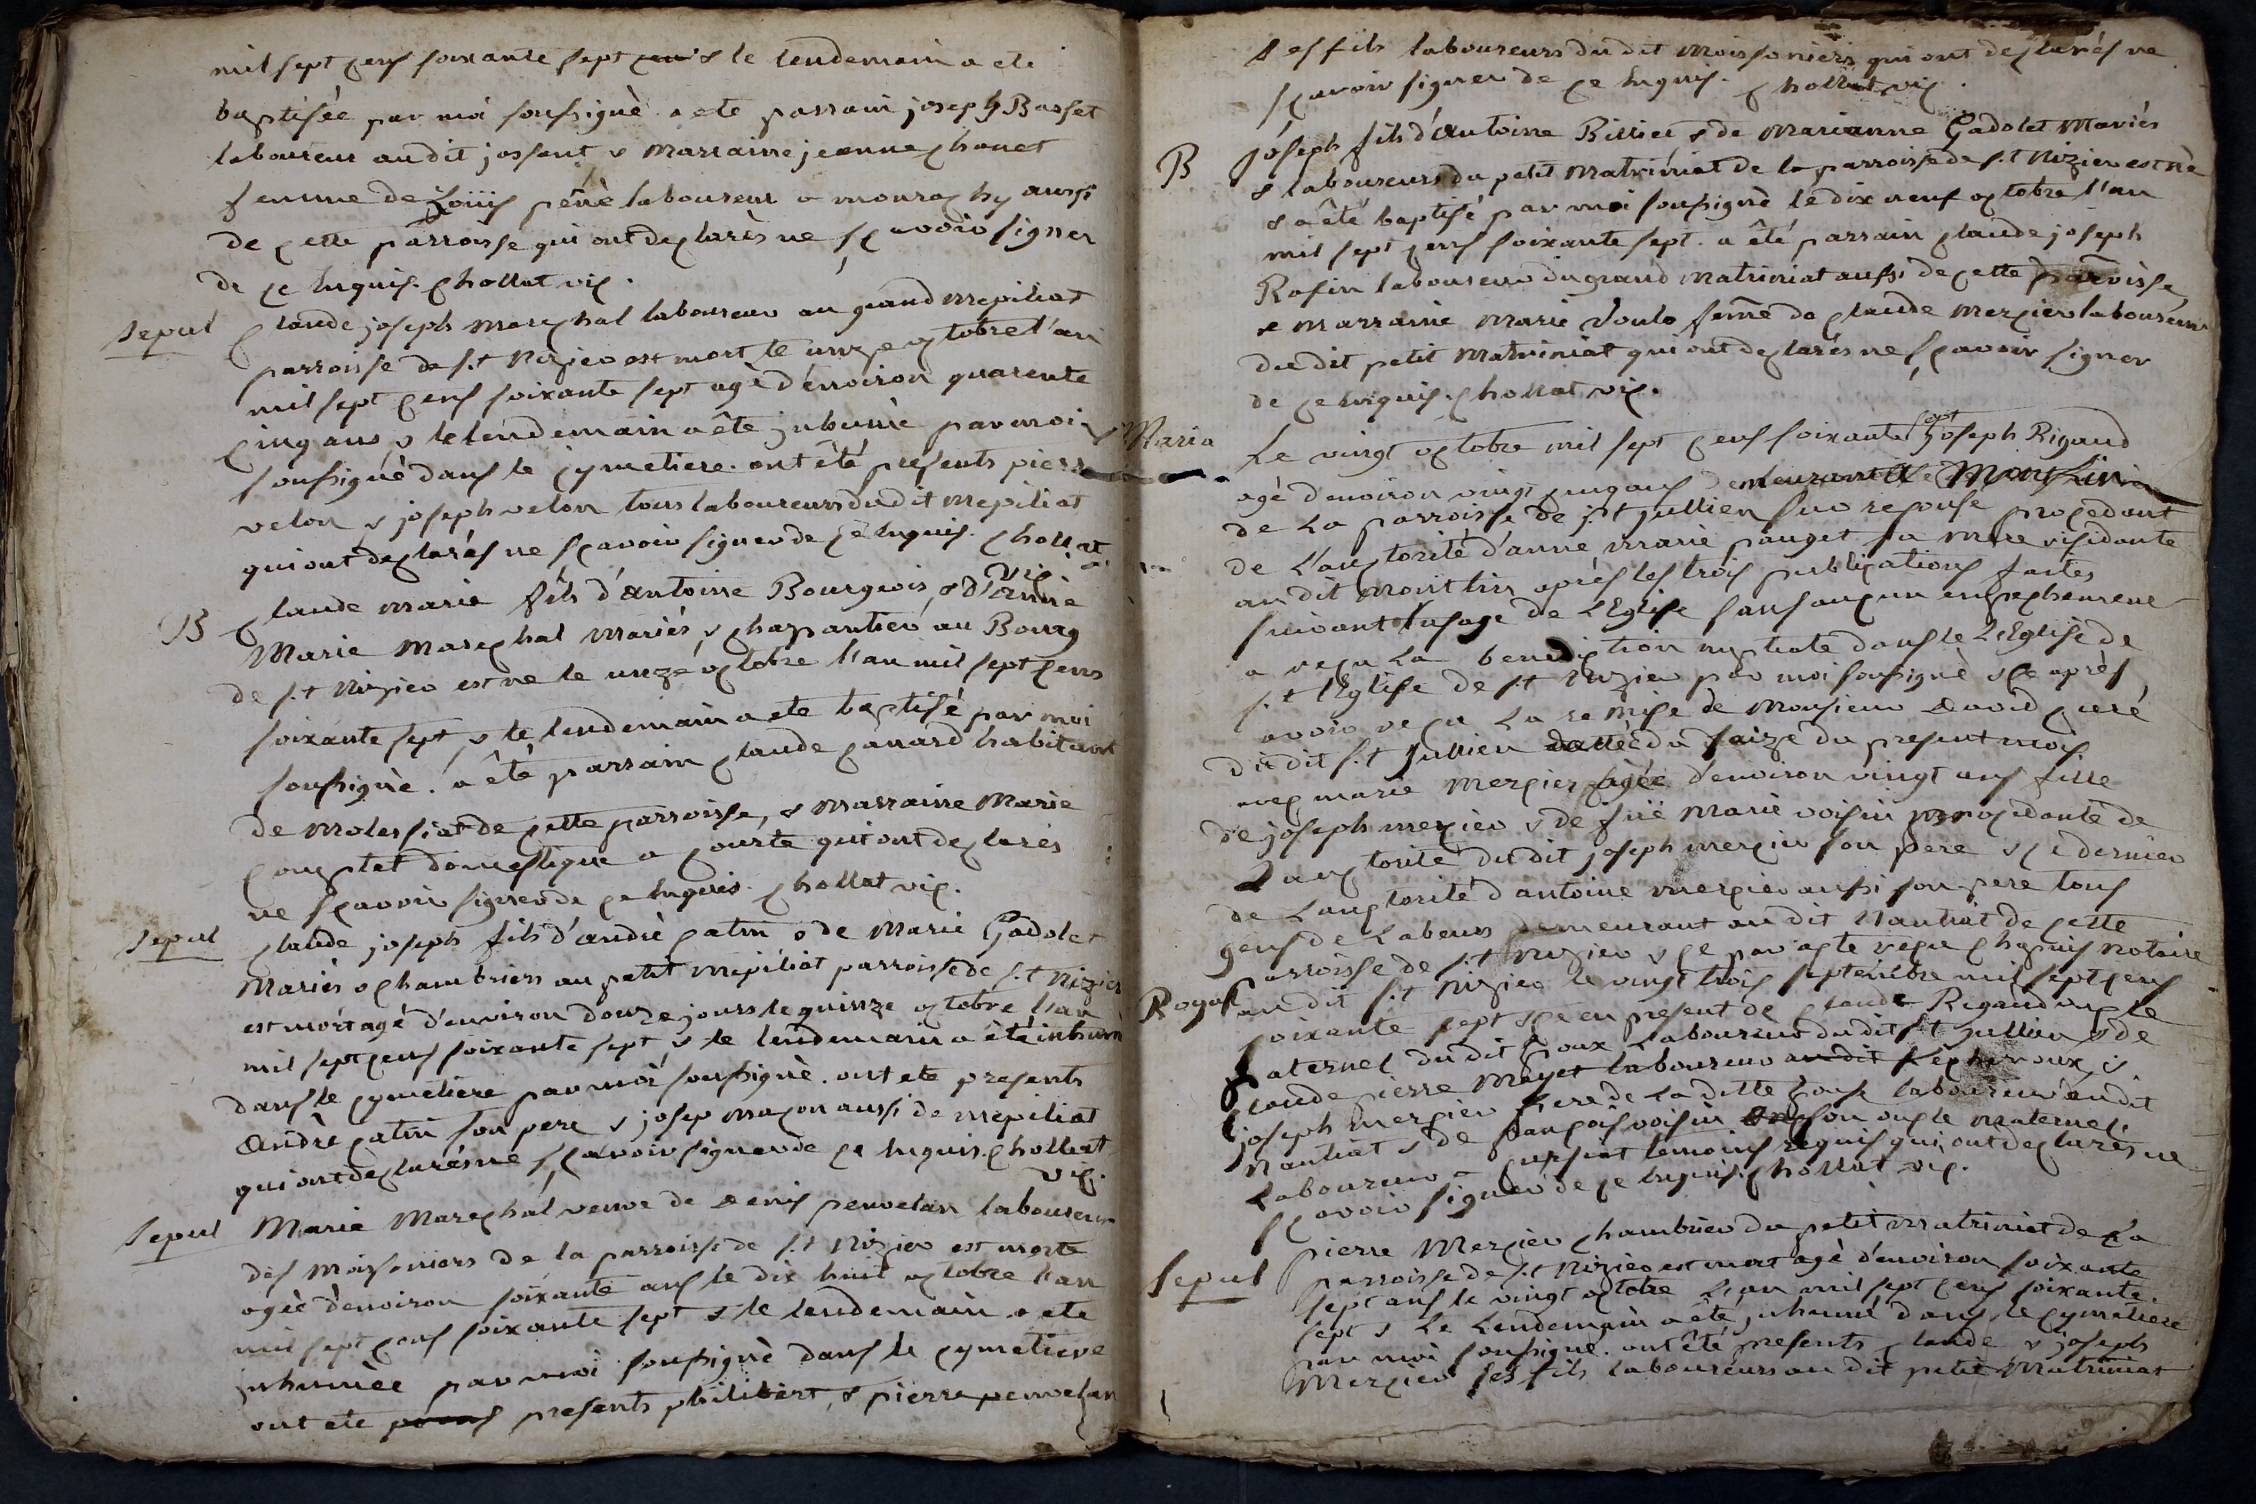 mil sept cens soixante sept cens & le lendemain a ete
baptisée par moi soussigné a ete parrain joseph Basset
laboureur audit jossent & marraine jeanne chanet
femme de Loüis péne laboureur a monrachy aussi
de cette parroisse qui ont declarés ne sçavoir signer
de ce enquis. chollat vic.
sepul
claude joseph marechal laboureur au grand mepiliat
parroisse de s.t Nizier est mort le unze octobre l'an
mil sept cens soixante sept agé d'environ quarente
cinq ans & le lendemain a été inhumé par moi
soussigné dans le cymetiere. ont été presents pierre
velon & joseph velon tous laboureurs du dit mepiliat
qui ont declarés ne sçavoir signer de ce enquis. chollat
vic
B
claude marie fils d'antoine Bourgeois, & d'anne
Marie marechal mariés & chapantier au Bourg
de s.t Nizier est ne le unze octobre l'an mil sept cens
soixante sept, & le lendemain a ete baptisé par moi
soussigné. a été parrain claude canard habitant
de molessiat de cette parroisse, & marraine Marie
couplet domestique a courte qui ont declarés
ne sçavoir signer de ce enquis. chollat vic.
sepul
claude joseph fils d'andré catin & de Marie Gadolet
Mariés & chambriers au petit mepiliat parroisse de s.t Nizier
est mort agé d'environ douze jours le quinze octobre l'an
mil sept cens soixante sept & le lendemain a été inhumé
dans le cymetiere par moi soussigné. ont ete presents
andré catin son pere & josep maçon aussi de mepiliat
qui ont declarés ne sçavoir signer de ce enquis. chollat
vic.
sepul
Marie Marechal veuve de denis penvelan laboureur
des moissoniers de la parroisse de s.t Nizier est morte
agée d'environ soixante ans le dix huit octobre l'an
mil sept cens soixante sept & le lendemain a ete
inhumée par moi soussigné dans le cymetiere
ont ete presents philibert, & pierre penvelan
ses fils laboureurs du dit moissoniers qui ont declarés ne
sçavoir signer de ce enquis. chollat vic.
B
joseph fils d'antoine Billier & de marianne Gadolet Mariés
& laboureurs du petit matriniat de la parroisse de s.t Nizier est né
& a été baptisé par moi soussigné le dix neuf octobre l'an
mil sept cens soixante sept. a été parrain claude joseph
Rafin laboureur du grand matriniat aussi de cette parroisse
& marraine marie Voulo feme de claude mercier laboureur
du dit petit matriniat qui ont declarés ne sçavoir signer
de ce enquis. chollat vic.
Maria
Le vingt octobre mil sept cens soixante sept joseph Rigaud
agé d'environ vingt cinq ans demeurant a Montlin
de la parroisse de s.t jullien sur ressouse procedant
de l'auctorité d'anne marie pauget sa mere residante
au dit montlin après les trois publications faites
suivant l'usage de l'Eglise sans aucun empechement
a reçu la benediction nuptiale dans le l'Eglise de
s.t l'Eglise de s.t Nizier par moi soussigné & ce après
avoir reçu la remise de Monsieur david curé
du dit s.t jullien dattée du saize du present mois
avec marie mercier agée d'environ vingt ans fille
de joseph mercier & de feüe marie voisin procedante de
L'auctorité du dit joseph mercier son pere & ce dernier
de l'auctorité d'antoine mercier aussi son pere tous
gens de labeurs demeurant au dit Nantiat de cette
parroisse de s.t Nizier & ce par acte reçu chapuis notaire
Royal au dit s.t Nizier le vingt trois septembre mil sept cens
soixante sept & ce en present de claude Rigaud oncle
paternel du dit epoux laboureur du dit s.t jullien & de
claude pierre Mayet laboureur au dit &
joseph mercier frere de la ditte epouse laboureur au dit
Nantiat & de françois voisin son oncle maternel
Laboureur a temoins requis qui ont declarés ne
sçavoir signer de ce enquis. chollat vic.
sepul
pierre Mercier chambrier du petit matriniat de la
parroisse de s.t Nizier est mort agé d'environ soixante
sept ans le vingt octobre l'an mil sept cens soixante
sept & le lendemain a été inhumé dans le cymetiere
par moi soussigné. ont été presents claude & joseph
Mercier ses fils laboureurs au dit petit matriniat